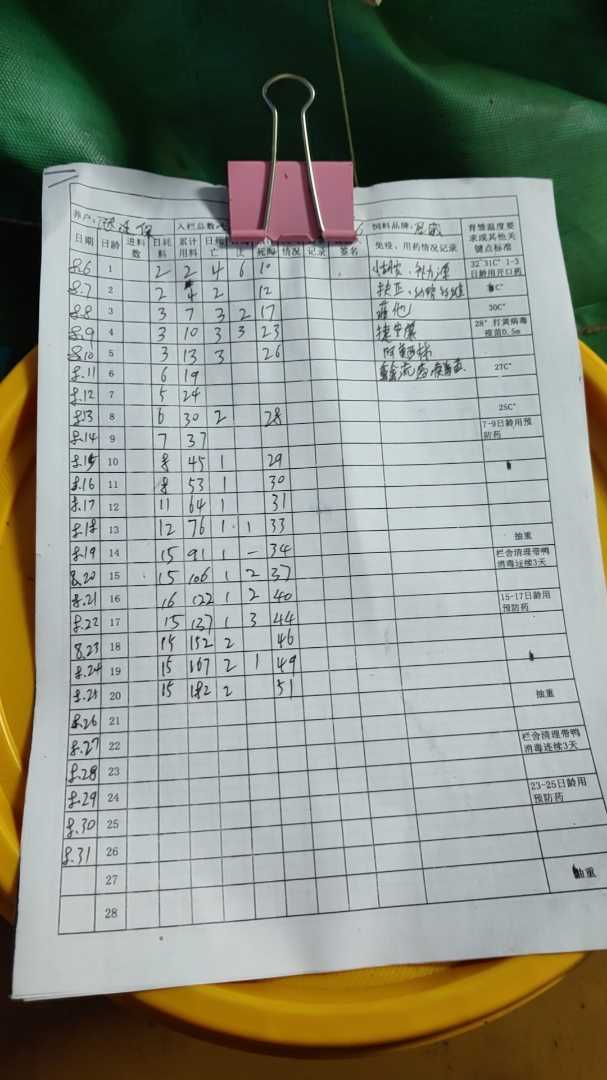 养户: 入栏总数 6 饲料品牌: 育雏温度要求或其他关键点标准
日期 日龄 进料数 日耗料 累计用料 日死亡 次 死淘 情况 记录 签名 免疫、用药情况记录
8.6 1 2 2 4 6 10 32°31C° 1-3日龄用开口药
8.7 2 2 4 2 12 C°
8.8 3 3 7 3 2 17 30C°
8.9 4 3 10 3 3 23 28° 打黄病毒疫苗0.5m
8.10 5 3 13 3 26
8.11 6 6 19 27C°
8.12 7 5 24 25C°
8.13 8 6 30 2 28 7-9日龄用预防药
8.14 9 7 37
8.15 10 8 45 1 29
8.16 11 8 53 1 30
8.17 12 11 64 1 31
8.18 13 12 76 1 1 33 抽重
8.19 14 15 91 1 - 34 栏舍清理带鸭消毒连续3天
8.20 15 15 106 1 2 37
8.21 16 16 122 1 2 40 15-17日龄用预防药
8.22 17 15 137 1 3 44
8.23 18 15 152 2 46
8.24 19 15 167 2 1 49
8.25 20 15 182 2 51 抽重
8.26 21
8.27 22 栏舍清理带鸭消毒连续3天
8.28 23
8.29 24 23-25日龄用预防药
8.30 25
8.31 26
27 抽重
28